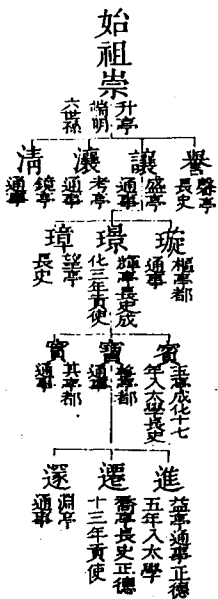 始祖崇
升亭
端明
六世孫
譽
馨亭
長史
讓
盛亭
通事
瀼
考亭
通事
淸
鏡亭
通事
璇
樞亭都
通事
璟
輝亭長史成
化三年貢使
璋
望亭
長史
賓
玉亭成化十七
年入太學長史
寶
亭都
通事
實
其亭都
通事
進
益亭通事正德
五年入太學
遷
喬亭長史正德
十三年貢使
遂
淵亭
通事